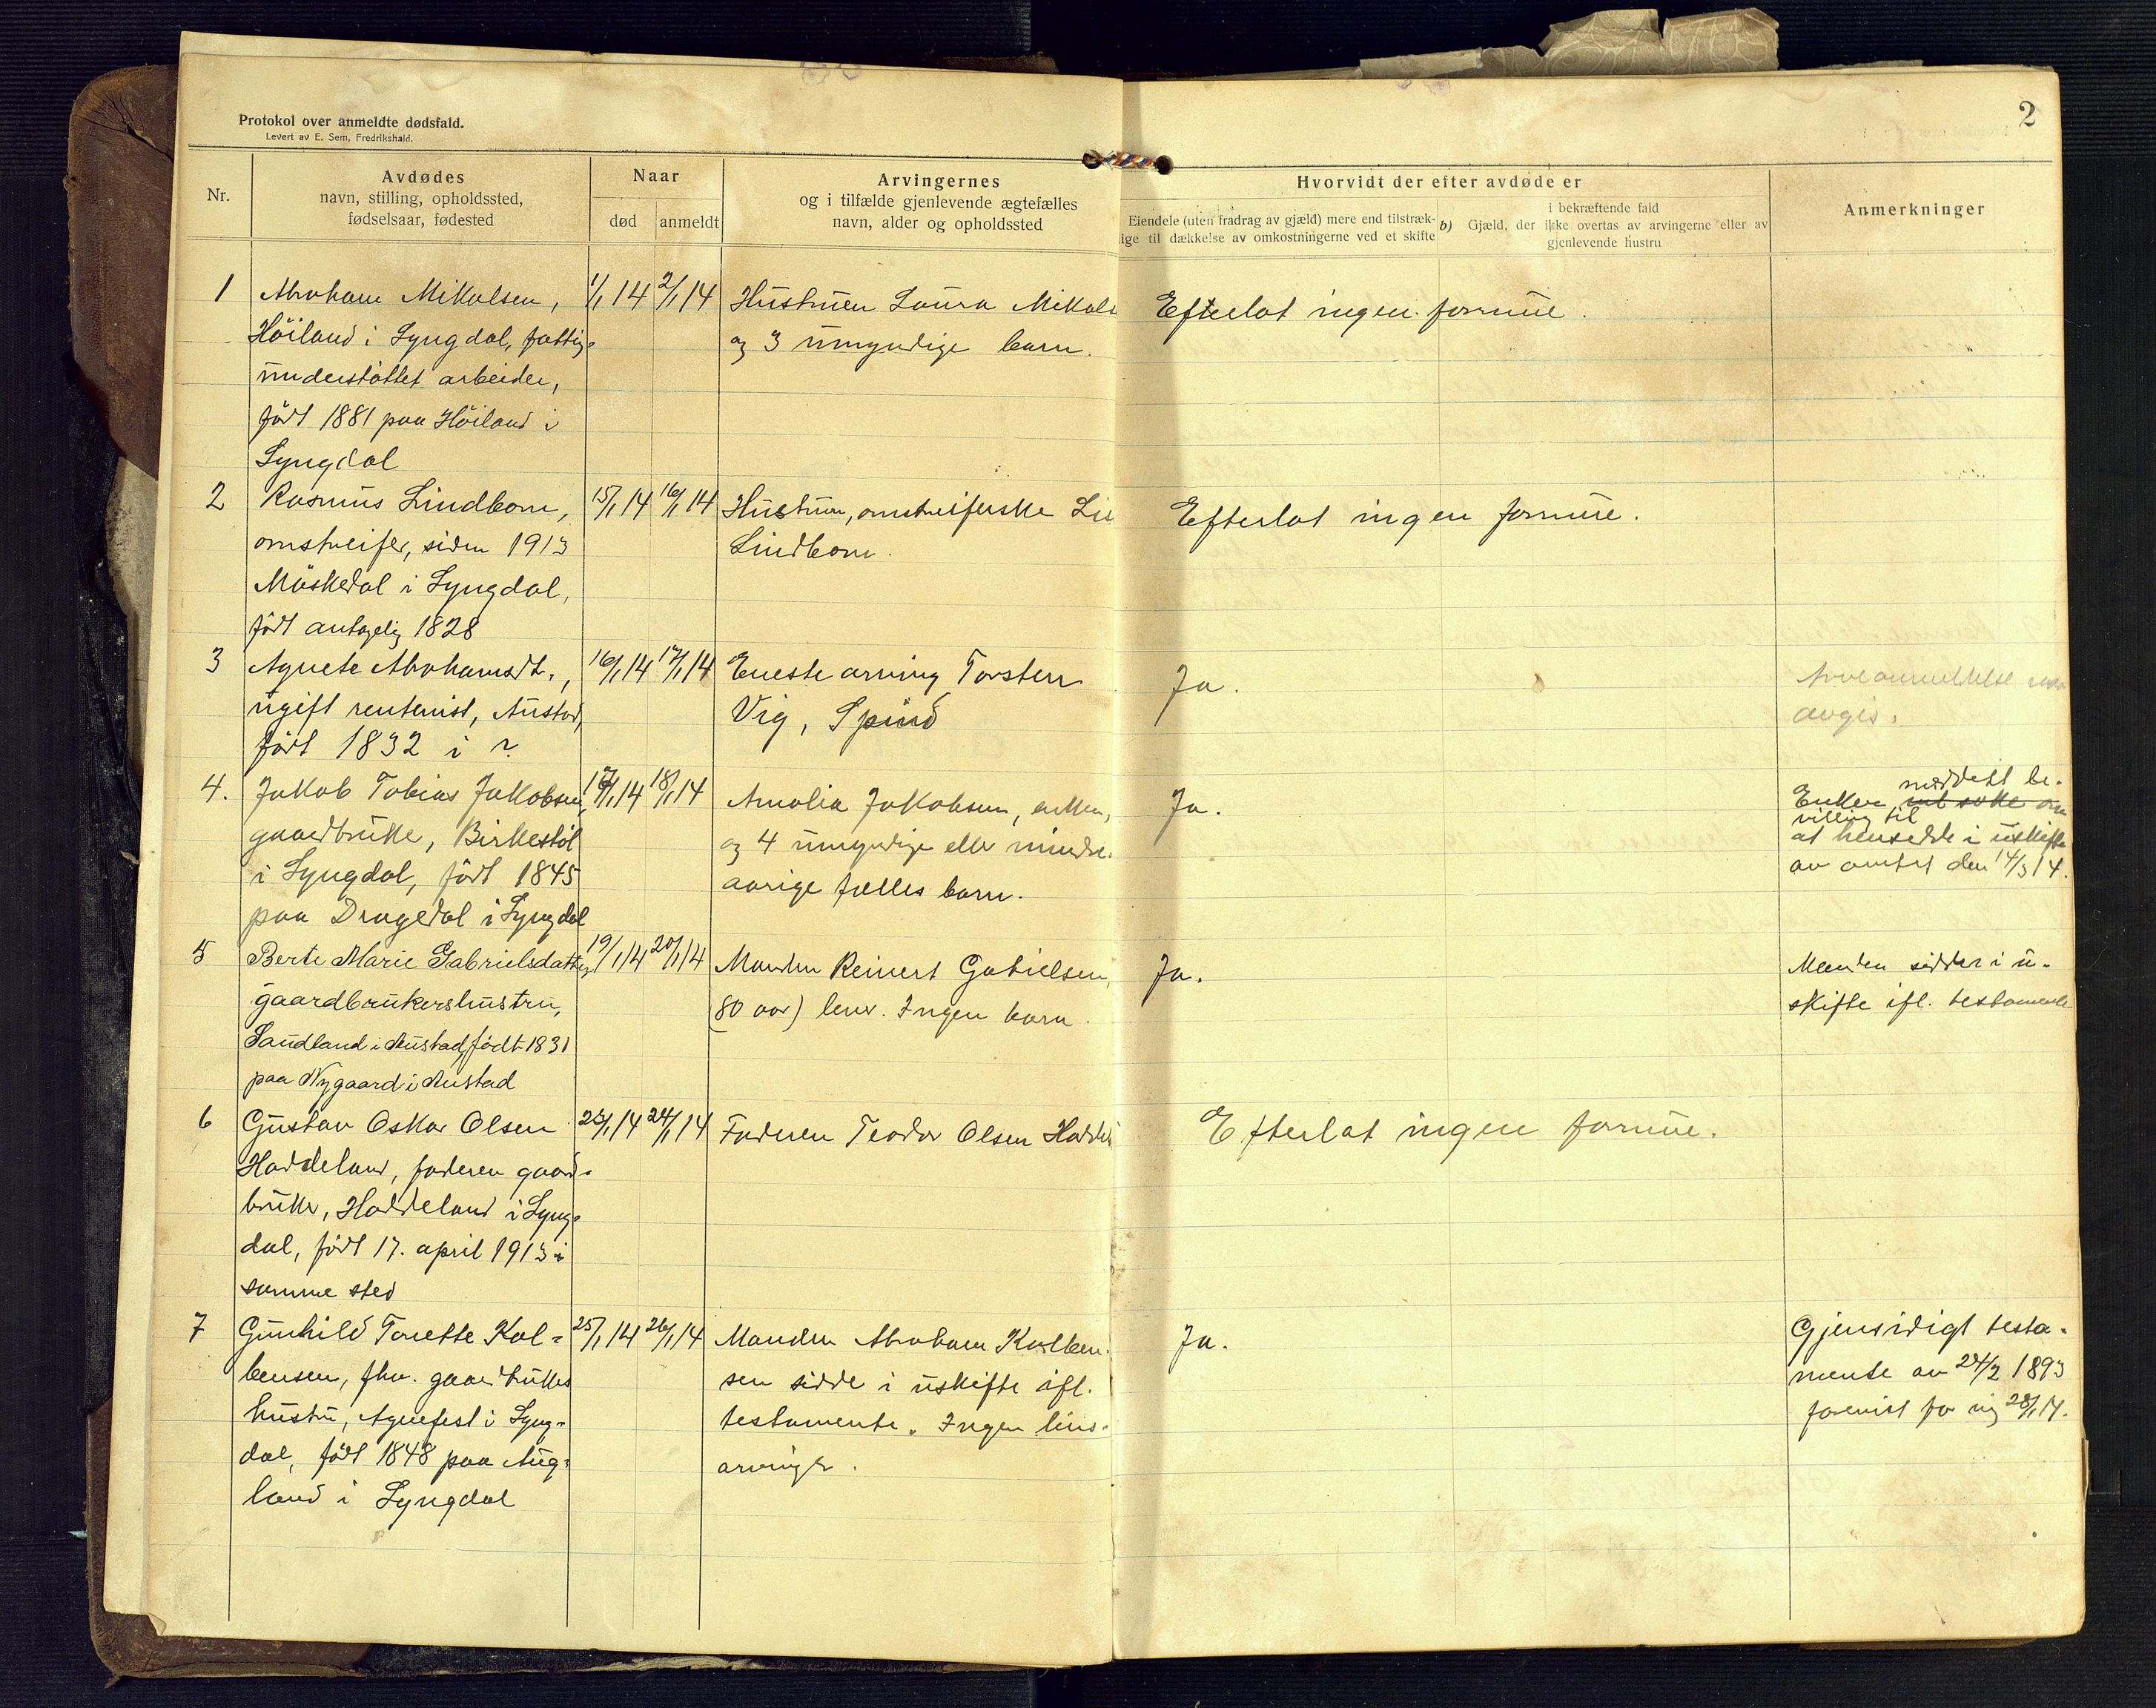 Protokol over anmeldte dødsfald.
Levert av E. Sem, Fredrikshald.
2
Nr.
Avdødes
navn, stilling, opholdssted,
fødselsaar, fødested
Naar
død
anmeldt
Arvingernes
og i tilfælde gjenlevende ægtefælles
navn, alder og opholdssted
Hvorvidt der efter avdøde er
Eiendele (uten fradrag av gjæld) mere end tilstræk-
ige til dækkelse av omkostningerne ved et skifte
i bekræftende fald
b) Gjæld, der ikke overtas av arvingerne eller av
gjenlevende hustru
Anmerkninger
1
Abraham Mikalsen,
Höiland i Lyngdal, fattig-
understöttet arbeider,
född 1881 paa Höiland i
Lyngdal
1/1 14
2/1 14
Hustruen Laura Mikals
og 3 umyndige barn.
Efterlot ingen formue.
2
Rasmus Lindbom,
omstreifer, siden 1913
Möskedal i Lyngdal,
född antagelig 1828
15/1 14
16/1 14
Hustruen, omstreiferske Li
Lindbom.
Efterlot ingen formue.
3
Agnete Abrahamsdt.,
ugift rentenist, Austad,
född 1832 i ?
16/1 14
17/1 14
Eneste arving Torsten
Vig, Spind
Ja.
Arveanmeldelse
avgis.
4.
Jakob Tobias Jakobsen,
gaardbruker, Birkestöl
i Lyngdal, född 1845
paa Dragedal i Lyngdal
17/1 14
18/1 14
Amalia Jakobsen, enken,
og 4 umyndige eller mindre-
aarige fælles barn.
Ja.
meddelt be-
Enken vil söke om
villing til
at hensidde i uskifte
av amtet den 14/3 14.
5
Berte Marie Gabrielsdatter,
gaardbrukershustru,
Sandland i Austad, född 1831
paa Nygaard i Austad
19/1 14
20/1 14
Manden Reinert Gabrielsen,
(80 aar) lever. Ingen barn.
Ja.
Manden sidder i u-
skifte ifl. testamente
6
Gustav Oskar Olsen
Haddeland, faderen gaard-
bruker, Haddeland i Lyng-
dal, född 17. april 1913 i
samme sted
23/1 14
24/1 14
Faderen Teodor Olsen Hadde
Efterlot ingen formue.
7
Gunhild Tonette Kol-
bensen, fhv. gaardbrukers
hustru, Agnefest i Lyng-
dal, född 1848 paa Aug-
land i Lyngdal
25/1 14
26/1 14
Manden Abraham Kolben-
sen sidde i uskifte ifl.
testamente. Ingen livs-
arvinger.
Ja.
Gjensidigt testa-
mente av 24/2 1893
forevist for mig 28/1 14.